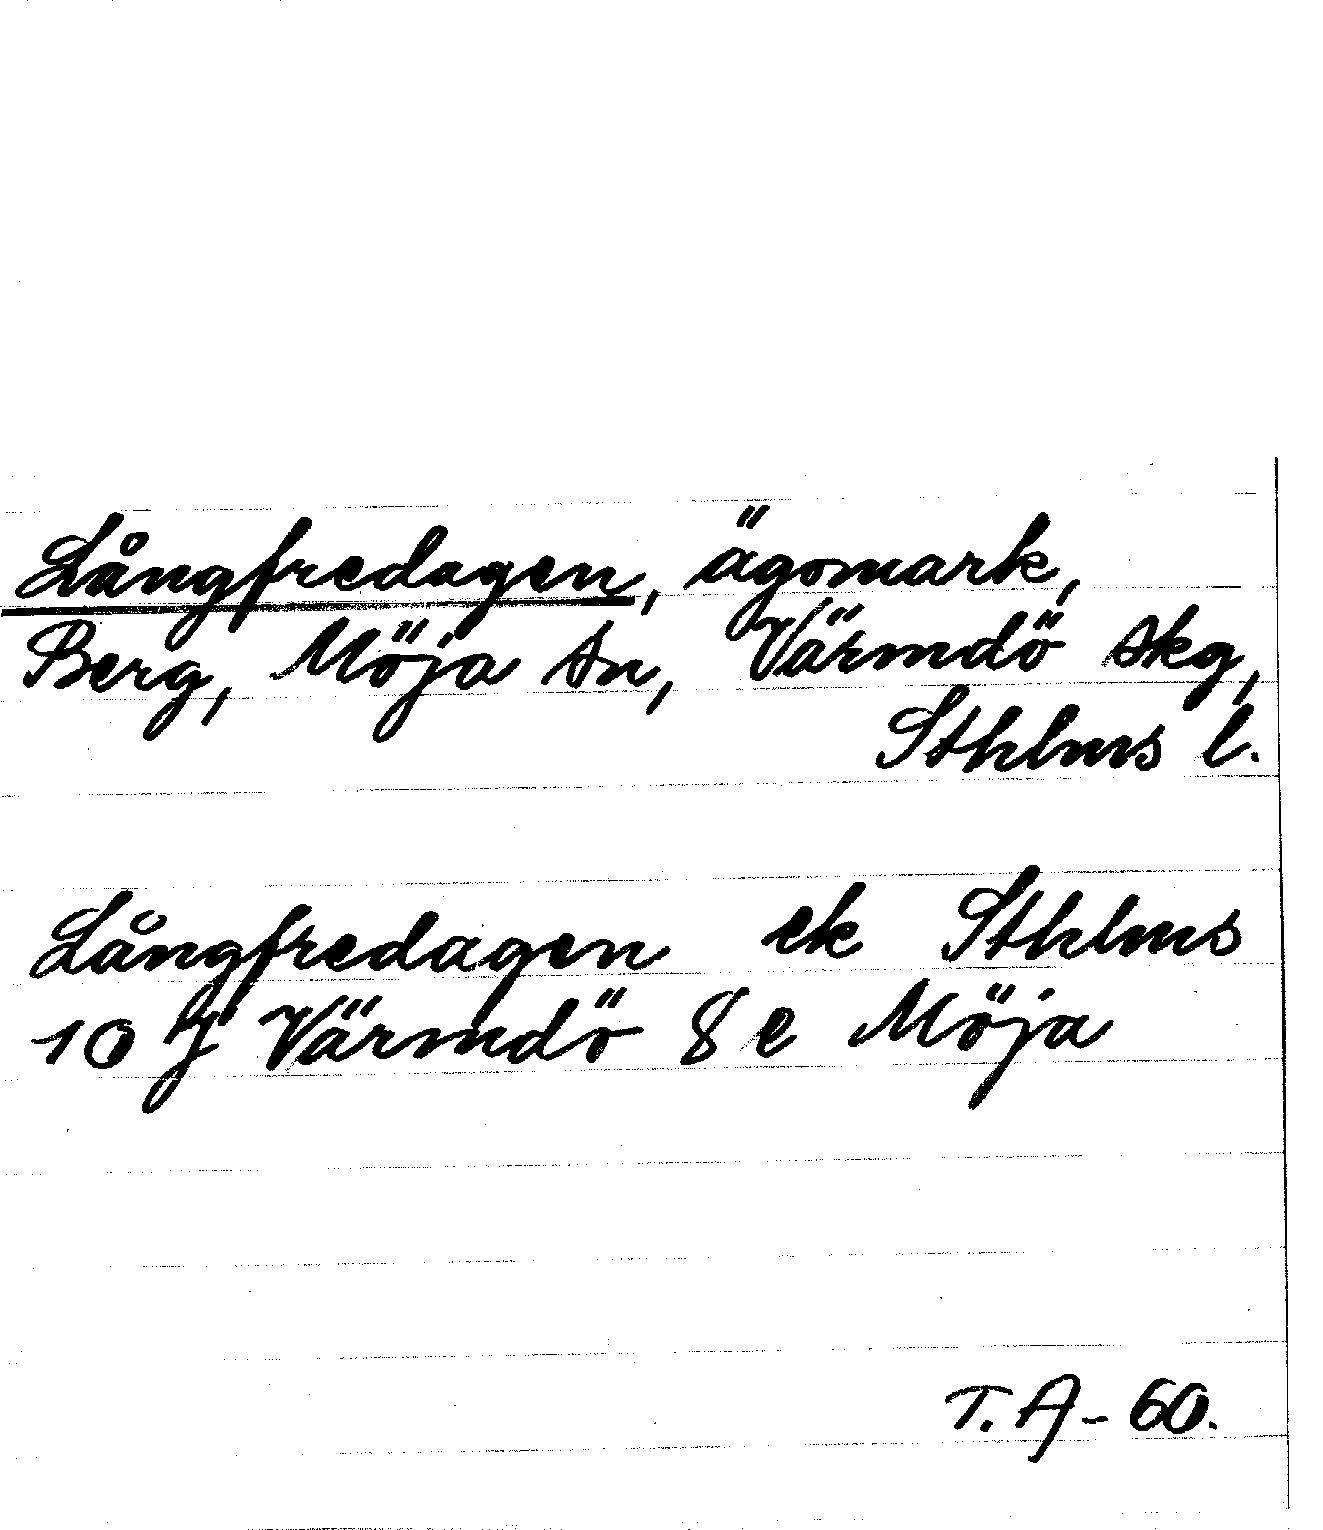 Långfredagen, ägomark,
Berg, Möja sn, Värmdö skg,
Sthlms l.
Långfredagen ek Sthlms
10 J Värmdö 8 e Möja
T. A - 60.